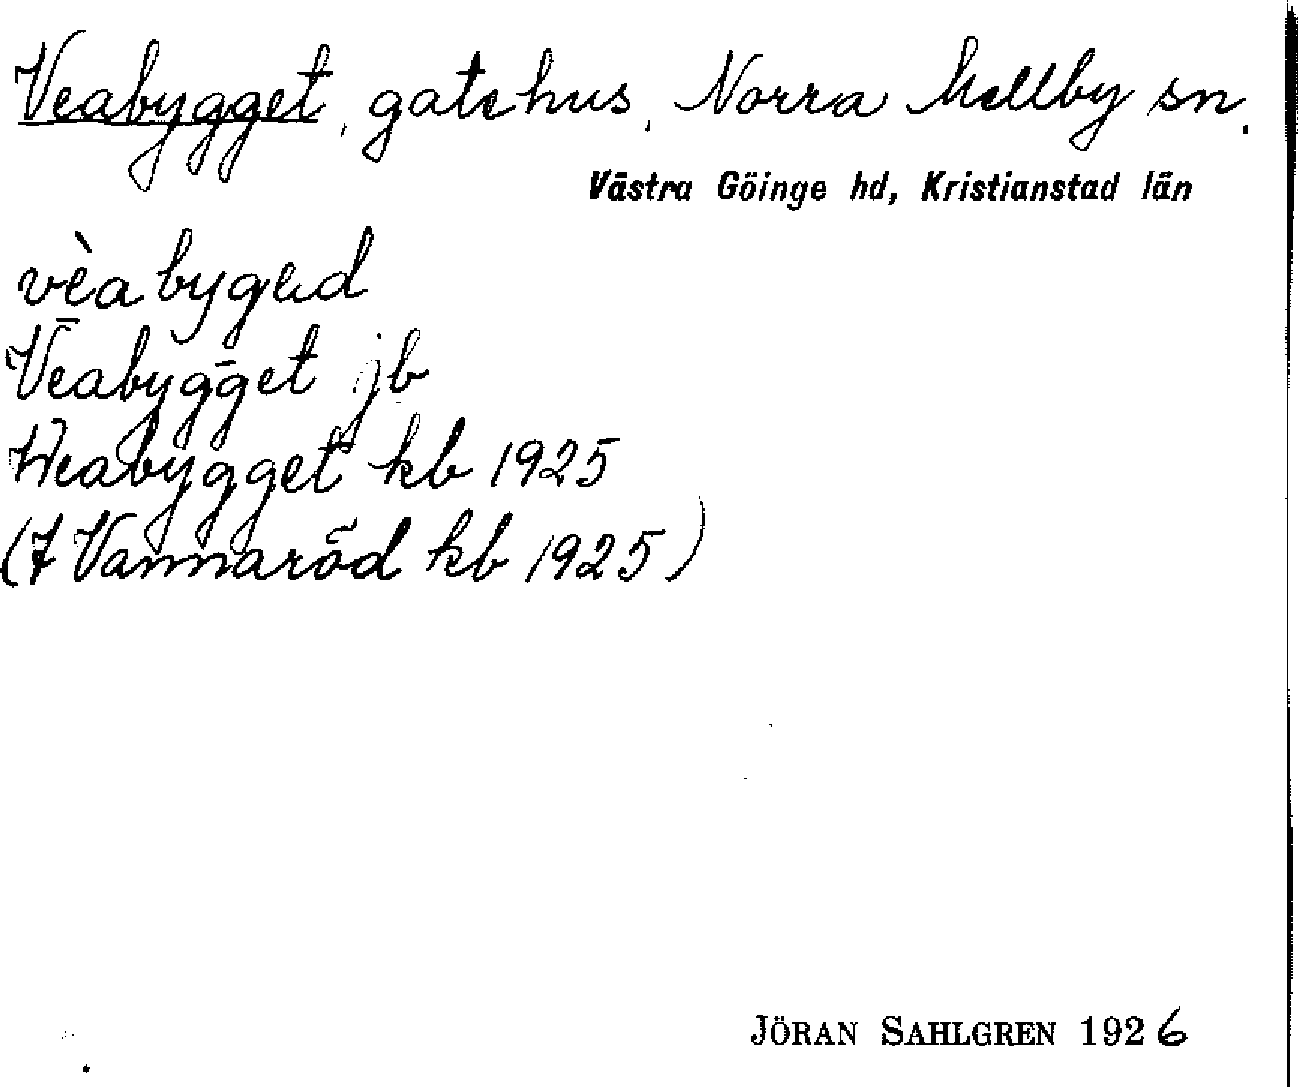 Veabygget, gatehus, Norra Mellby sn.
Västra Göinge hd, Kristianstad län
vèabygəd
Veabygget jb
Weabygget kb 1925
(7 Vannaröd kb 1925)
JÖRAN SAHLGREN 1926